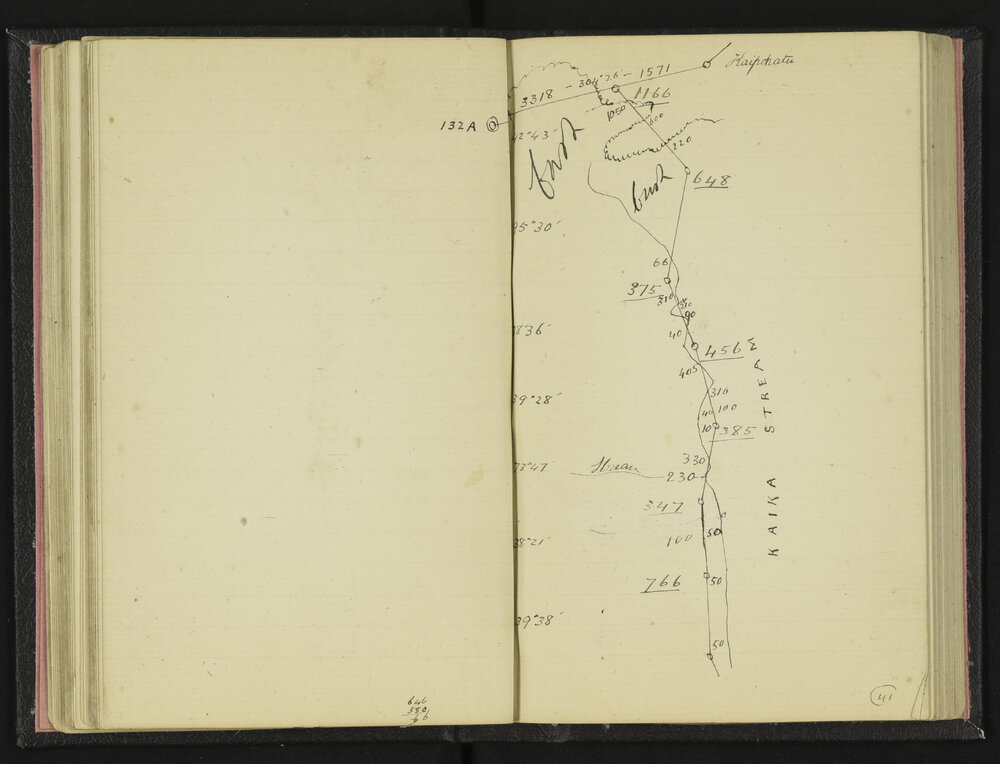 Kaipohatu
3318 - 304°26 - 1571
1166
132A
1050
600
42°43'
bush
220
bush
648
95°30'
66
375
310
310
90
36'
40
456
405
310
39°28'
40 100
10 385
330
73°47
Stream
230
347
38°21'
100 50
766
50
39°38'
50
KAIKA STREAM
646
580
66
41